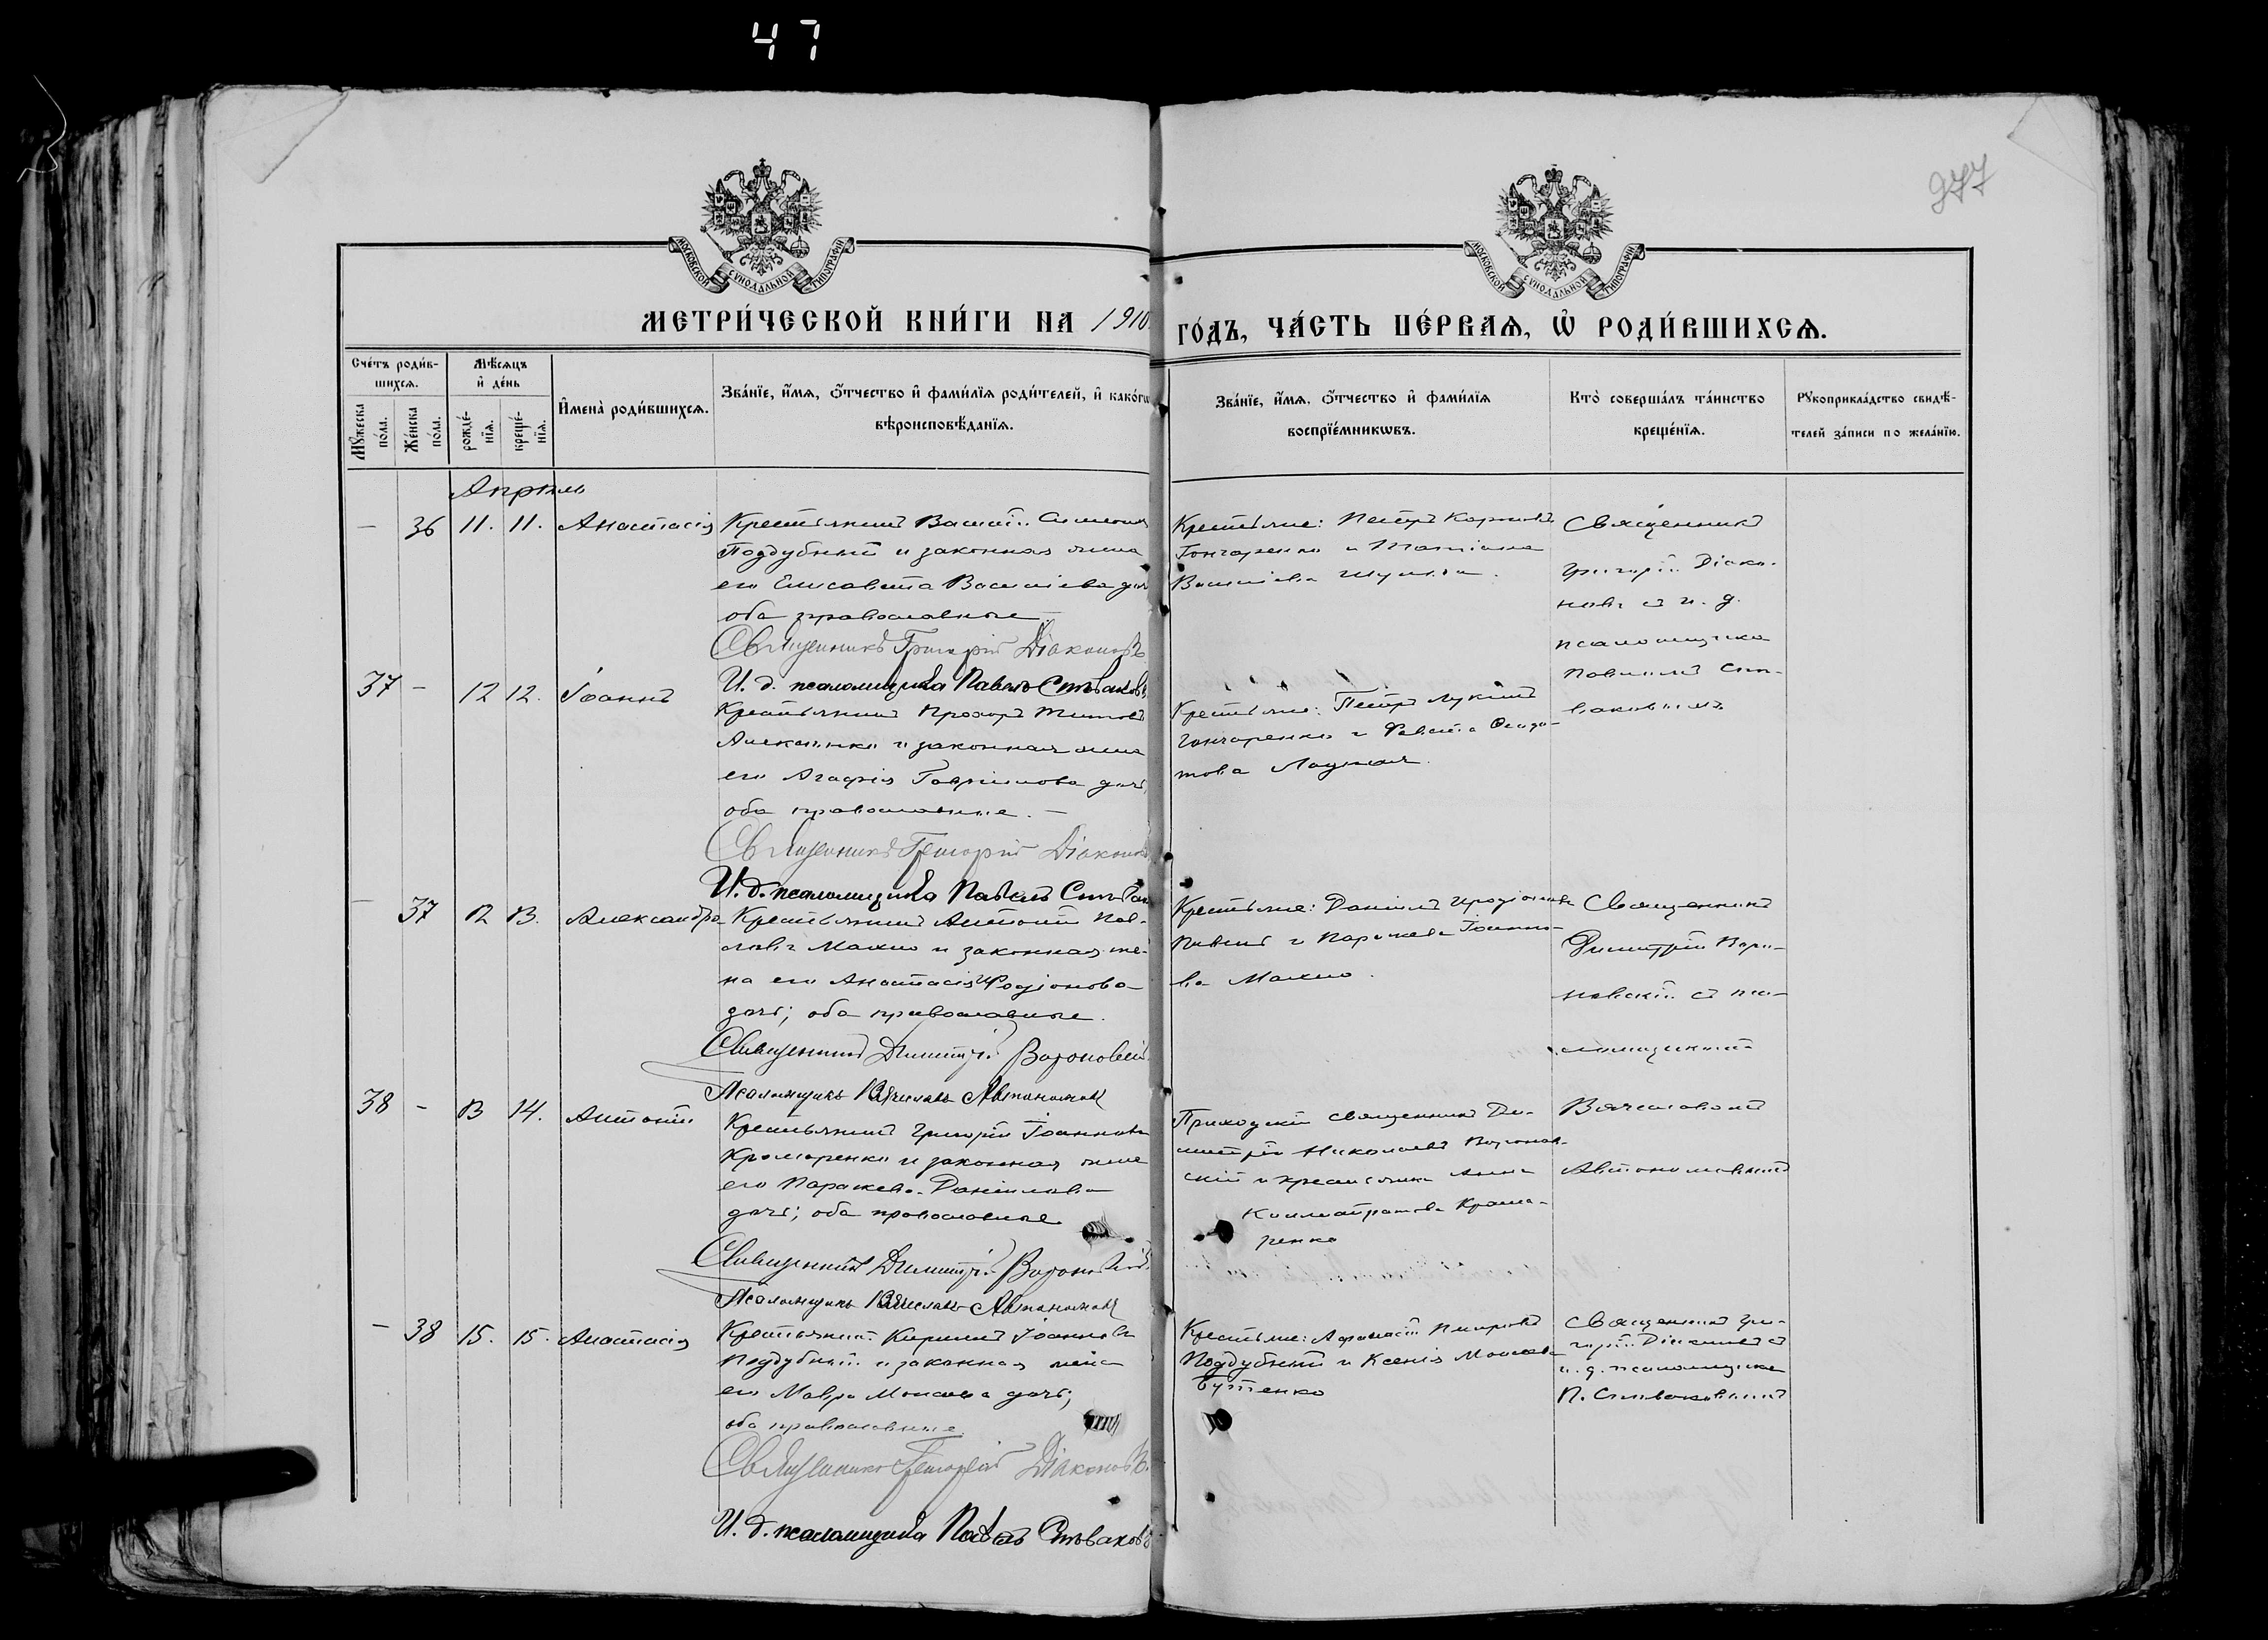 47
277
МОСКОВСКОЙ СѴНОДАЛЬНОЙ ТИПОГРАФІИ
МОСКОВСКОЙ СѴНОДАЛЬНОЙ ТИПОГРАФІИ
МЕТРИ́ЧЕСКОЙ КНИ́ГИ НА 1910
ГО́ДЪ, ЧА́СТЬ ПЕ́РВАѦ, Ѡ҆ РОДИ́ВШИХСѦ.
Сче́тъ роди́в-
шихсѧ.
Мѣ́сѧцъ
и҆ де́нь
Мꙋ́жеска
по́ла.
Же́нска
по́ла.
рожде́-
нїѧ.
креще́-
нїѧ.
И҆мена̀ роди́вшихсѧ.
Зва́нїе, и҆́мѧ, ѻ҆́тчество и҆ фами́лїѧ роди́телей, и҆ како́гѡ
вѣроисповѣ́данїѧ.
Зва́нїе, и҆́мѧ, ѻ҆́тчество и҆ фами́лїѧ
воспрїе́мникѡвъ.
Кто̀ соверша́лъ та́инство
креще́нїѧ.
Рꙋкоприкла́дство свидѣ́-
телей за́писи по жела́нїю.
Апрѣль
— 36 11. 11. Анастасія
Крестьянинъ
Поддубный и законная жена
его Елисавета Васильева
оба православные
Священникъ Григорій Діаконовъ
И. д. псаломщика Павелъ Стьваковъ
Крестьяне: Петръ
Гончаренко и Татіана
Васильева
Священникъ
Григорій Діако-
новъ съ и. д.
псаломщика
Павломъ
37 — 12 12. Іоаннъ
Крестьянинъ Прохоръ Титовъ
и законная жена
его Агафія Гавриилова дочь,
оба православные. —
Священникъ Григорій Діаконовъ
И. д. псаломщика Павелъ
Крестьяне: Петръ Лукинъ
Гончаренко и
това
— 37 12 13. Александра
Крестьянинъ Антоній Пав-
ловъ Махно и законная же-
на его Анастасія Иродіонова
дочь; оба православные.
Священникъ Димитрій Вороновскій
Псаломщикъ Вячеславъ Автономовъ
Крестьяне: Даніилъ Иродіоновъ
и Параскева Іоанно-
ва Махно.
Священникъ
Димитрій Воро-
новскій съ пса-
ломщикомъ
Вячеславомъ
Автономовымъ
38 — 13 14. Антоній
Крестьянинъ Григорій Іоанновъ
Крамаренко и законная жена
его Параскева Даніилова
дочь; оба православные
Священникъ Димитрій Вороновскій
Псаломщикъ Вячеславъ Автономовъ
Приходскій священникъ Ди-
митрій Николаевъ Воронов-
скій и крестьянка Анна
Крама-
ренко
— 38 15. 15. Анастасія
Крестьянинъ Кириллъ Іоанновъ
Поддубный и законная жена
его Мавра Моисеева дочь;
оба православные
Священникъ Григорій Діаконовъ.
И. д. псаломщика Павелъ Стьваковъ
Крестьяне: Афанасій
Поддубный и Ксенія Моисеева
Бутенко
Священникъ Гри-
горій Діаконовъ съ
и. д. псаломщика
П.